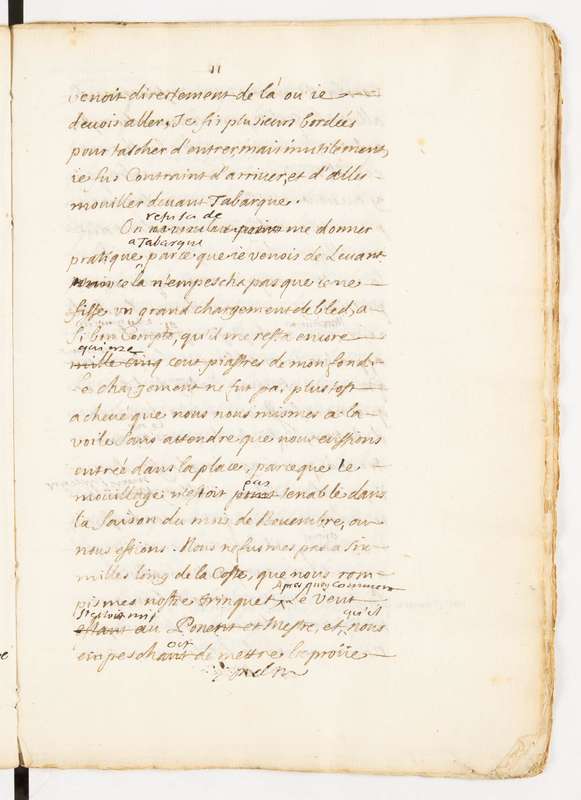 11
venoit directement de là ou ie
devois aller, Je fis plusieurs bordées
pour tascher d'entrer, mais inutilement,
ie fus Contraint d'arriver, et d'aller
mouiller devant Tabarque.
refusa de
On me donner
a Tabarque
pratique parce que ie venois de Levant
cela n'empescha pas que ie ne
fisse un grand chargement de bled, a
si bon Compte, qu'il me resta encore
quinze
mille cinq cent piastres de mon fond.
Le chargement ne fut pas plustost
achevé que nous nous mismes a la
voile sans attendre que nous eussions
entrée dans la place, parce que le
pas
mouillage n'estoit point tenable dans
la saison du mois de Novembre, ou
nous estions. Nous ne fusmes pas a six
milles loing de la Coste, que nous rom-
pismes nostre trinquet, Le vent
s'estoit mis qu'il
estant au Ponent et Mestre, et nous
oit
empeschant de mettre la proüe